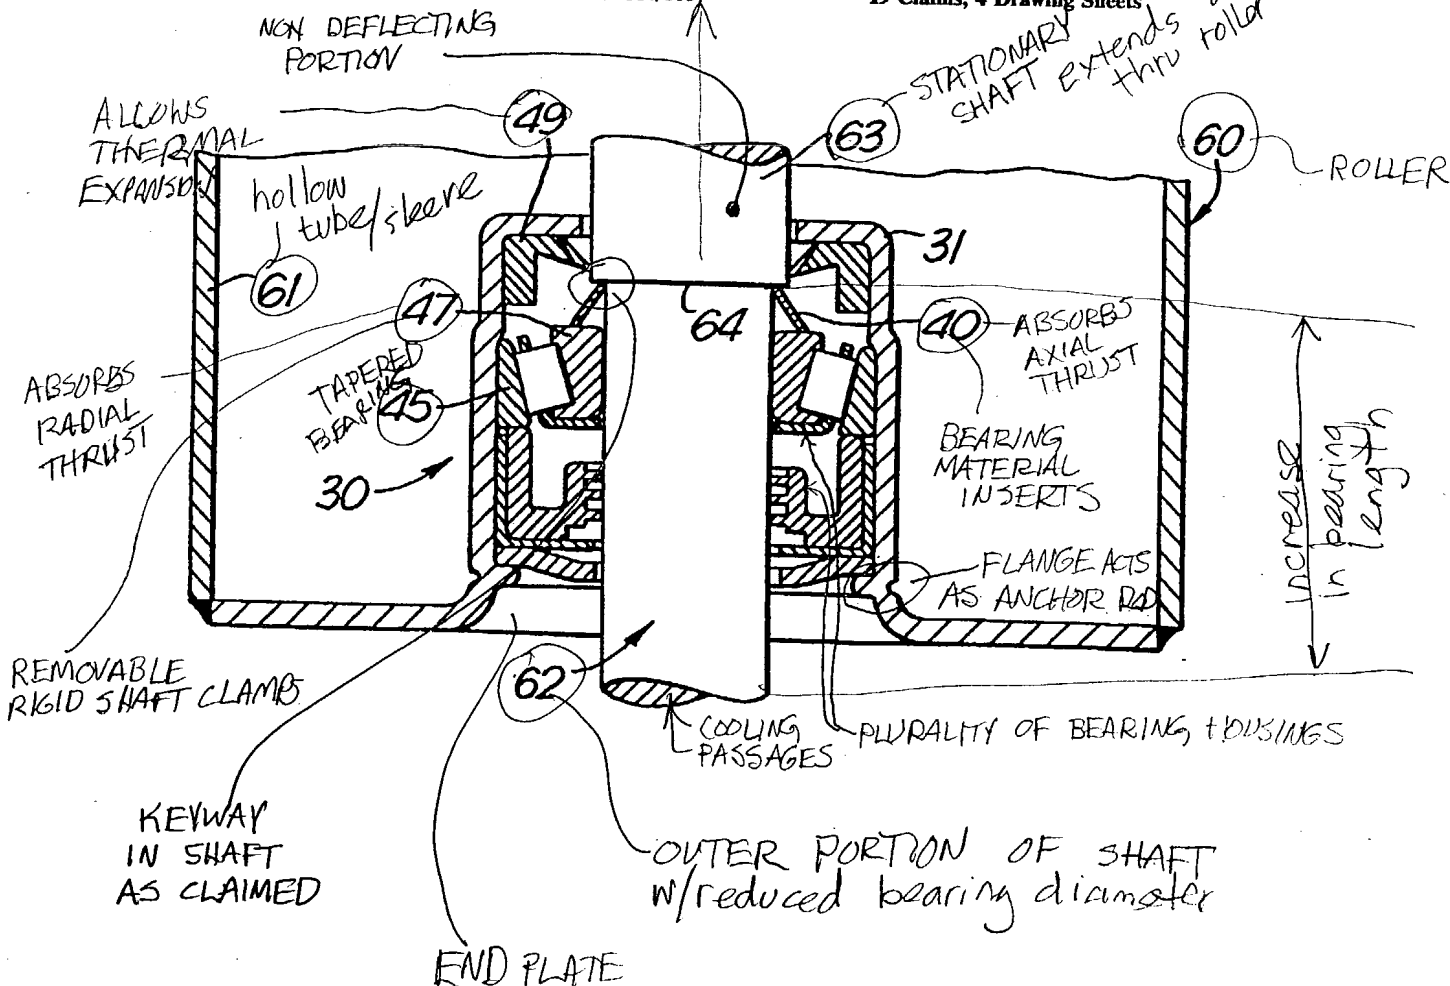 15 Claims, 4 Drawing Sheets
NON DEFLECTING
PORTION
STATIONARY
SHAFT extends
thru roller
ALLOWS
THERMAL
EXPANSION
49
63
60
ROLLER
hollow
tube/sleeve
31
61
47
64
40
ABSORBS
AXIAL
THRUST
ABSORBS
RADIAL
THRUST
TAPERED
BEARING
45
30
BEARING
MATERIAL
INSERTS
increase
in bearing
length
FLANGE ACTS
AS ANCHOR ROD
REMOVABLE
RIGID SHAFT CLAMPS
62
COOLING
PASSAGES
PLURALITY OF BEARING HOUSINGS
KEYWAY
IN SHAFT
AS CLAIMED
OUTER PORTION OF SHAFT
w/reduced bearing diameter
END PLATE